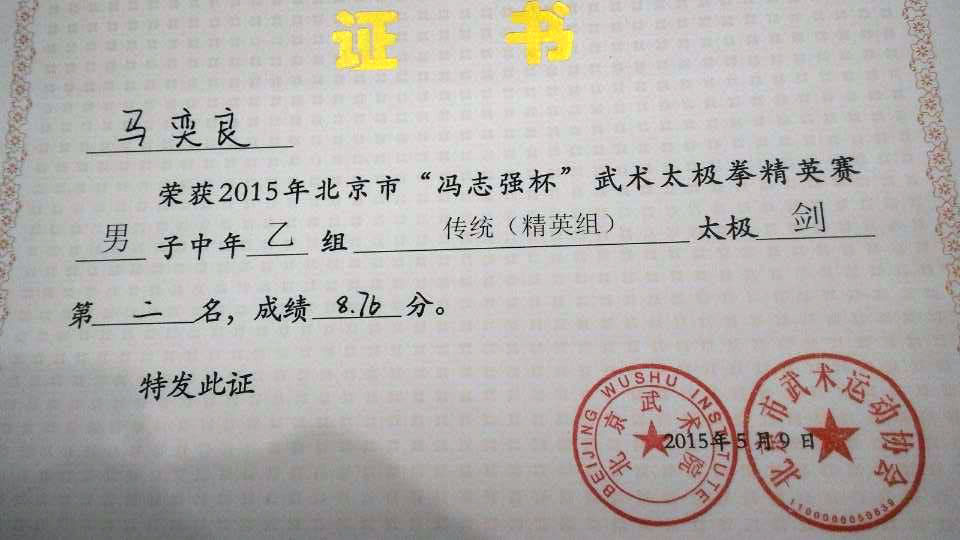 证书
马奕良
荣获2015年北京市“冯志强杯”武术太极拳精英赛
男子中年乙组传统（精英组）太极剑
第二名，成绩8.76分。
特发此证
BEIJING WUSHU INSTITUTE
北京武术院
北京市武术运动协会
2015年5月9日
1100000059639